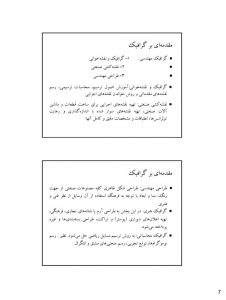 مقدمه‌ای بر گرافیک
گرافیک مهندسی: ۱- گرافیک و نقشه‌خوانی
۲- نقشه‌کشی صنعتی
۳- طراحی مهندسی
گرافیک و نقشه‌خوانی: آموزش اصول ترسیم، محاسبات ترسیمی، رسم
نقشه‌های مقدماتی و روش خواندن نقشه‌های اجرایی
نقشه‌کشی صنعتی: تهیه نقشه‌های اجرایی برای ساخت قطعات و ماشین
آلات صنعتی، تهیه نقشه‌های سوار شده با اندازه‌گذاری و رعایت
تولرانس‌ها، انطباقات و مشخصات دقیق و کامل آنها
مقدمه‌ای بر گرافیک
طراحی مهندسی: طراحی شکل ظاهری کلیه مصنوعات صنعتی از جهت
رنگ، نما و ابعاد با توجه به فرهنگ استفاده از آن وسایل از نظر فنی و
هنری
گرافیک هنری: در این بخش به طراحی آرم یا نشانه‌های تجاری، فرهنگی،
تهیه اعلان‌های دیواری (پوستر) و تراکت، طراحی بسته‌بندی‌ها و
گرافیک محاسباتی: به روش ترسیم مسایل ریاضی حل می‌شود. نظیر: رسم
نوموگرام‌ها، توابع تجربی، رسم منحنی‌های مشتق و انتگرال
7